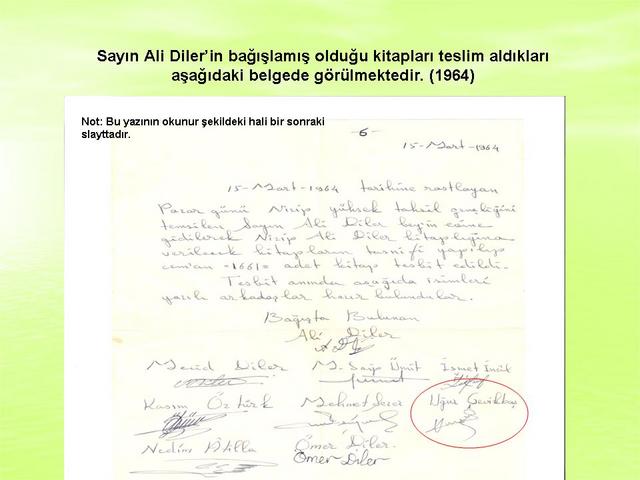 Sayın Ali Diler'in bağışlamış olduğu kitapları teslim aldıkları
aşağıdaki belgede görülmektedir. (1964)
Not: Bu yazının okunur şekildeki hali bir sonraki
slayttadır.
-6-
15-Mart-1964
15-Mart-1964 tarihine rastlayan
Pazar günü Nizip yüksek tahsil gençliğini
temsilen Sayın Ali Diler beyin evine
gidilerek Nizip Ali Diler kitaplığına
verilecek kitapların tasnifi yapılıp
cem'an -1661= adet kitap tesbit edildi.
Tesbit anında aşağıda isimleri
yazılı arkadaşlar hazır bulundular.
Bağışta Bulunan
Ali Diler
Mecid Diler M. Saip Ümit İsmet İnil
Kasım Öztürk Mehmet Uğur Çeviktaş
Nedim Atilla Ömer Diler.
Ömer Diler